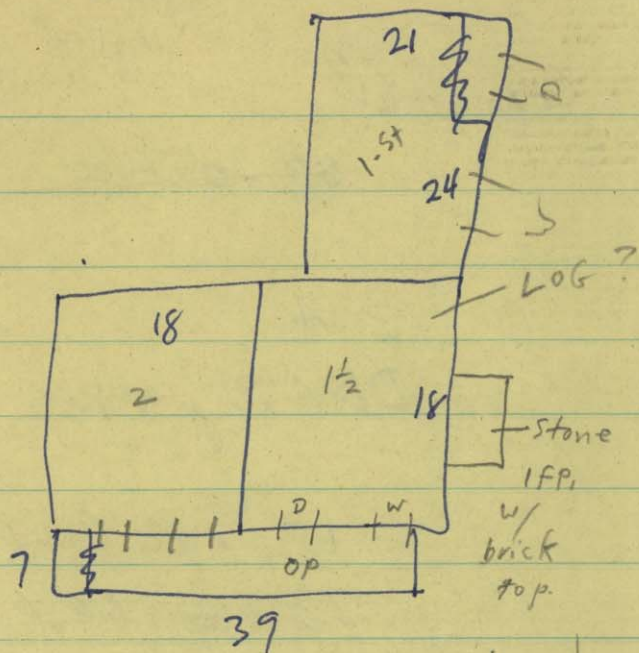 21
D
1-St
24
LOG ?
18
2
1½
18
Stone
1FP,
w/
brick
top.
D
W
7
OP
39